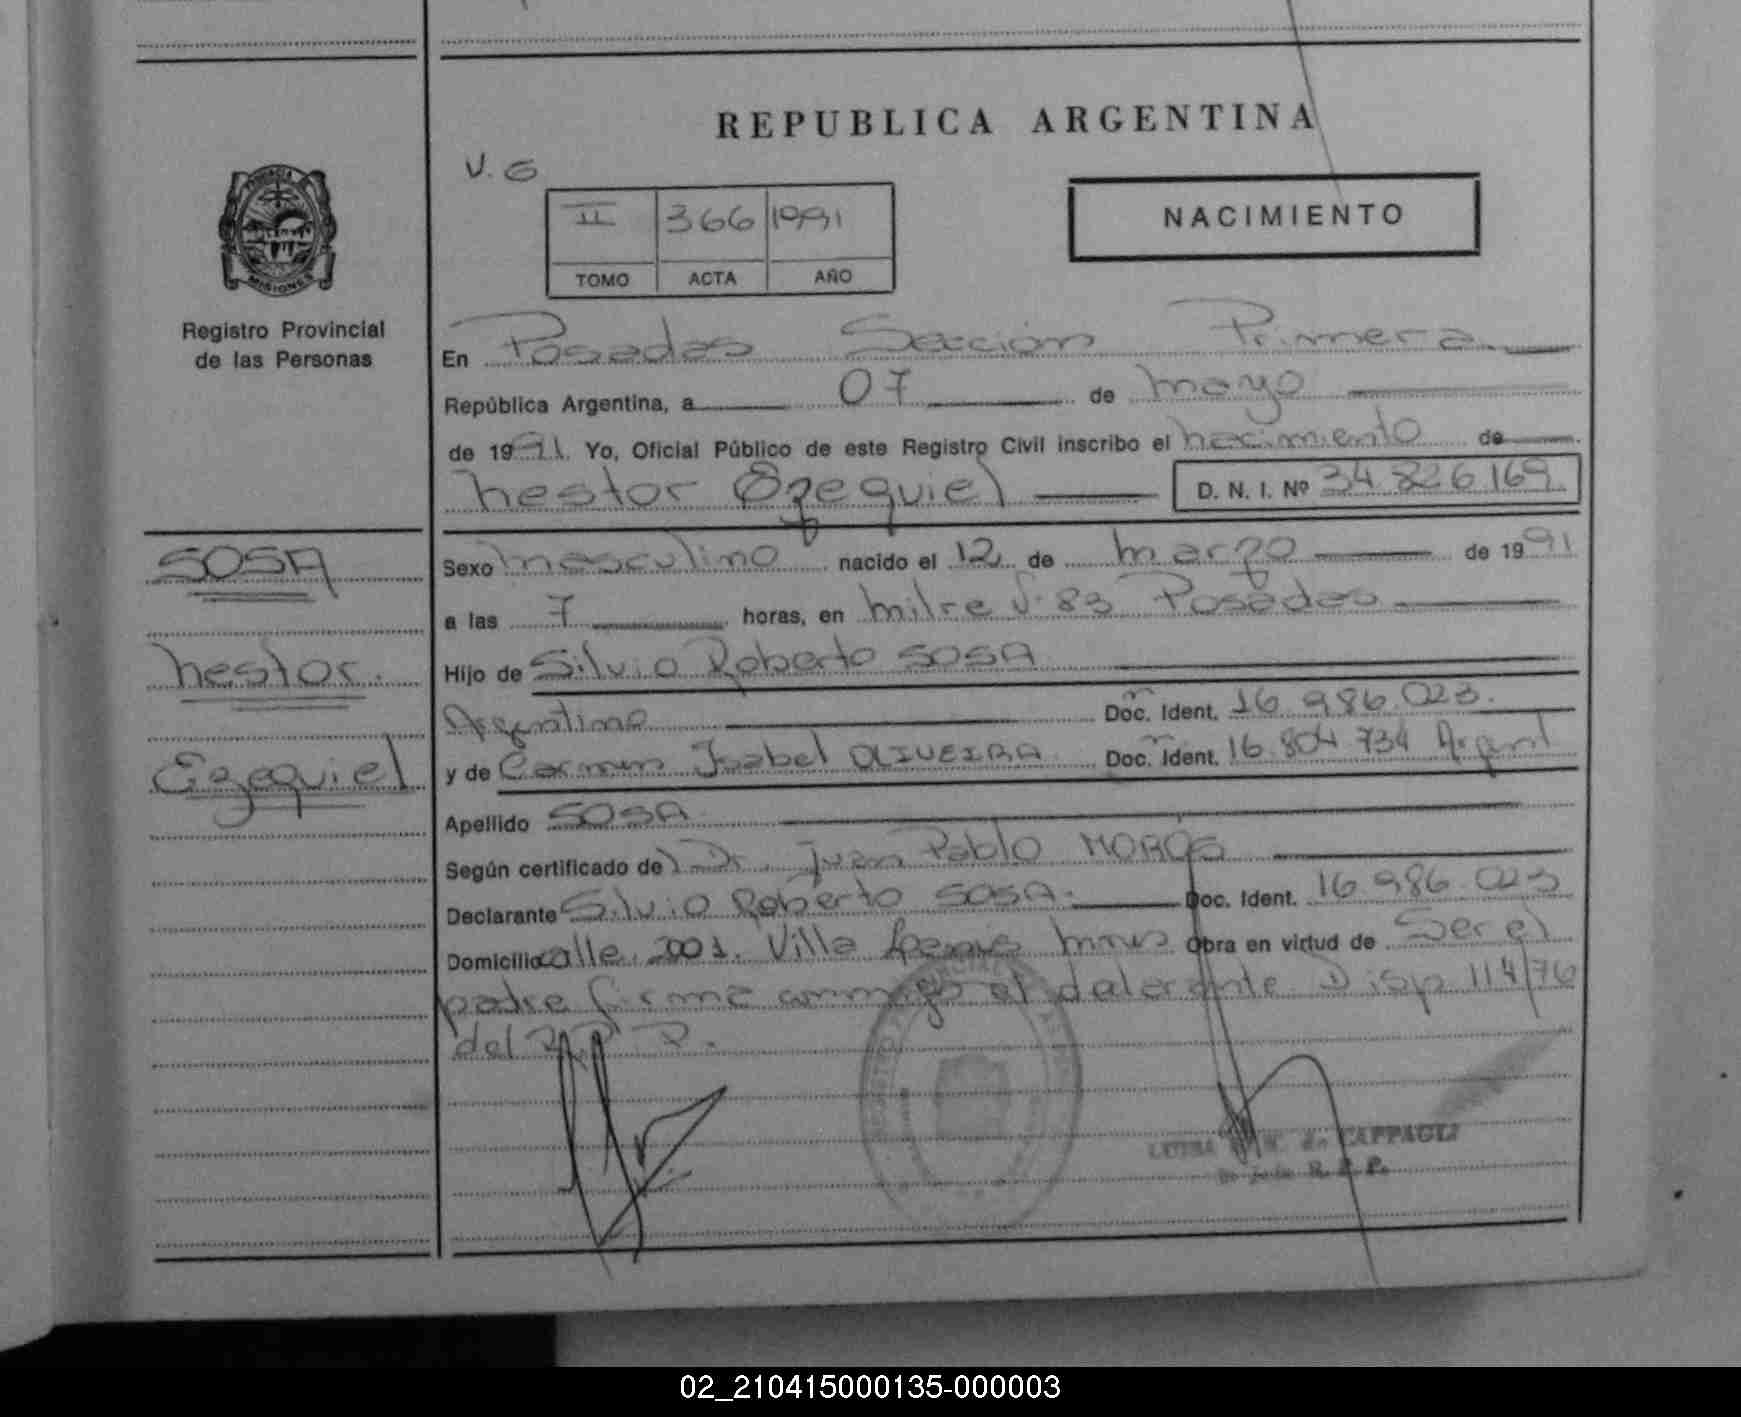 REPUBLICA ARGENTINA
V. G
II 366 1991
TOMO ACTA AÑO
NACIMIENTO
PROVINCIA
MISIONES
Registro Provincial
de las Personas
En Posadas Sección Primera
República Argentina, a 07 de mayo
de 1991 Yo, Oficial Público de este Registro Civil inscribo el nacimiento de
nestor Ezequiel D. N. I. Nº 34 826 169
SOSA
nestor.
Ezequiel
Sexo masculino nacido el 12 de marzo de 1991
a las 7 horas, en mitre 83 Posadas
Hijo de Silvio Roberto SOSA
Argentino Doc. Ident. 16 986.023.
y de Carmen Isabel OLIVEIRA Doc. Ident. 16.804 734 Argent
Apellido SOSA
Según certificado de Dr. Juan Pablo
Declarante Silvio Roberto SOSA. Doc. Ident. 16 986.023
Domicilio calle 2001. Villa Obra en virtud de Ser el
padre firma conmigo el declarante Disp 114/76
del R. P. P.
CAPPAGLI
R. P. P.
02_210415000135-000003